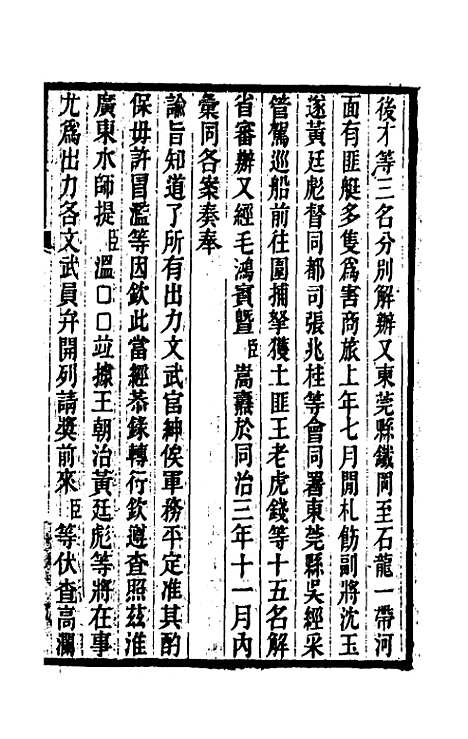 後才等三名分別解辦又東莞縣鐵岡至石龍一帶河
面有匪艇多隻爲害商旅上年七月開札飭副將沈玉
遂黃廷彪督同都司張兆桂等會同署東莞縣吳經采
管駕巡船前往圍捕拏獲土匪王老虎錢等十五名解
省審辦又經毛鴻賓暨臣嵩燾於同治三年十一月內
彙同各案奏奉
諭旨知道了所有出力文武官紳俟軍務平定准其酌
保毋許冒濫等因欽此當經恭錄轉行欽遵查照茲准
廣東水師提臣溫□□並據王朝治黃廷彪等將在事
尤爲出力各文武員弁開列請獎前來臣等伏查高瀾